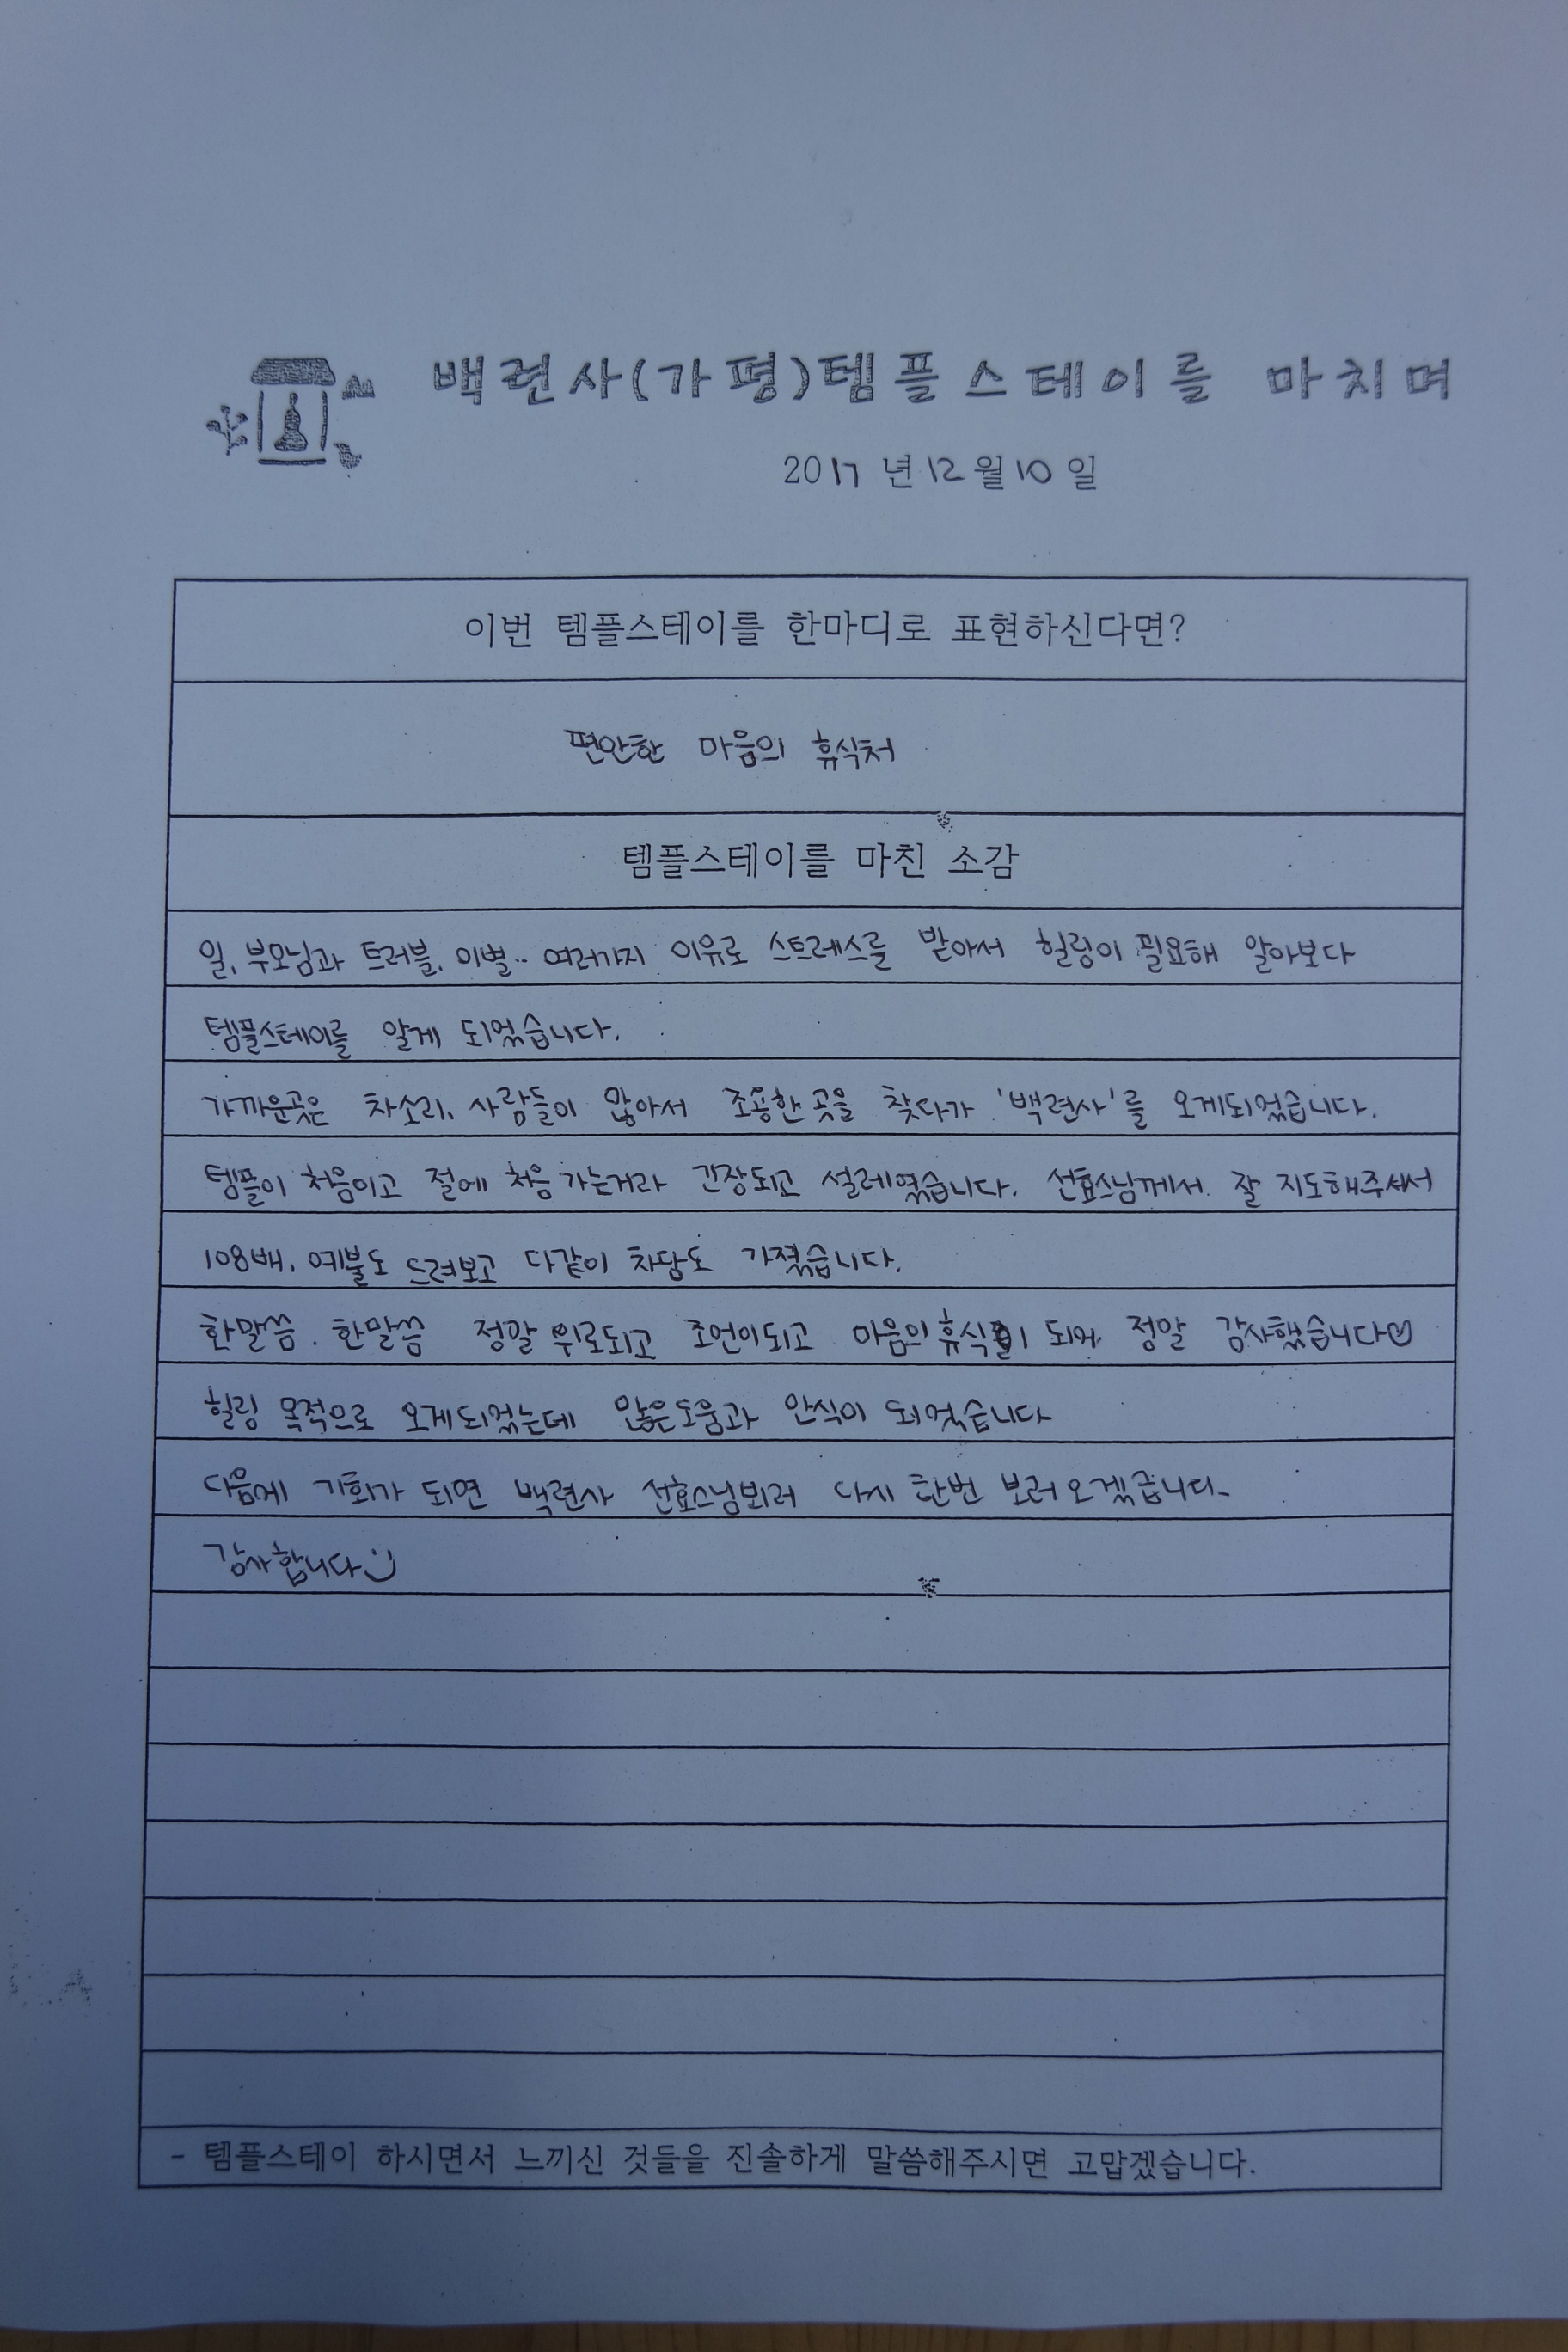 백련사(가평)템플스테이를 마치며
2017년 12월 10일
이번 템플스테이를 한마디로 표현하신다면?
편안한 마음의 휴식처
템플스테이를 마친 소감
일, 부모님과 트러블, 이별.. 여러가지 이유로 스트레스를 받아서 힐링이 필요해 알아보다
템플스테이를 알게 되었습니다.
가까운곳은 차소리, 사람들이 많아서 조용한곳을 찾다가 '백련사'를 오게되었습니다.
템플이 처음이고 절에 처음 가는거라 긴장되고 설레였습니다. 선효스님께서 잘 지도해주셔서
108배, 예불도 드려보고 다같이 차담도 가졌습니다.
한말씀. 한말씀 정말 위로되고 조언이되고 마음의 휴식이 되어 정말 감사했습니다♡
힐링 목적으로 오게되었는데 많은도움과 안식이 되었습니다
다음에 기회가 되면 백련사 선효스님뵈러 다시 한번 보러오겠습니다-
감사합니다:)
- 템플스테이 하시면서 느끼신 것들을 진솔하게 말씀해주시면 고맙겠습니다.